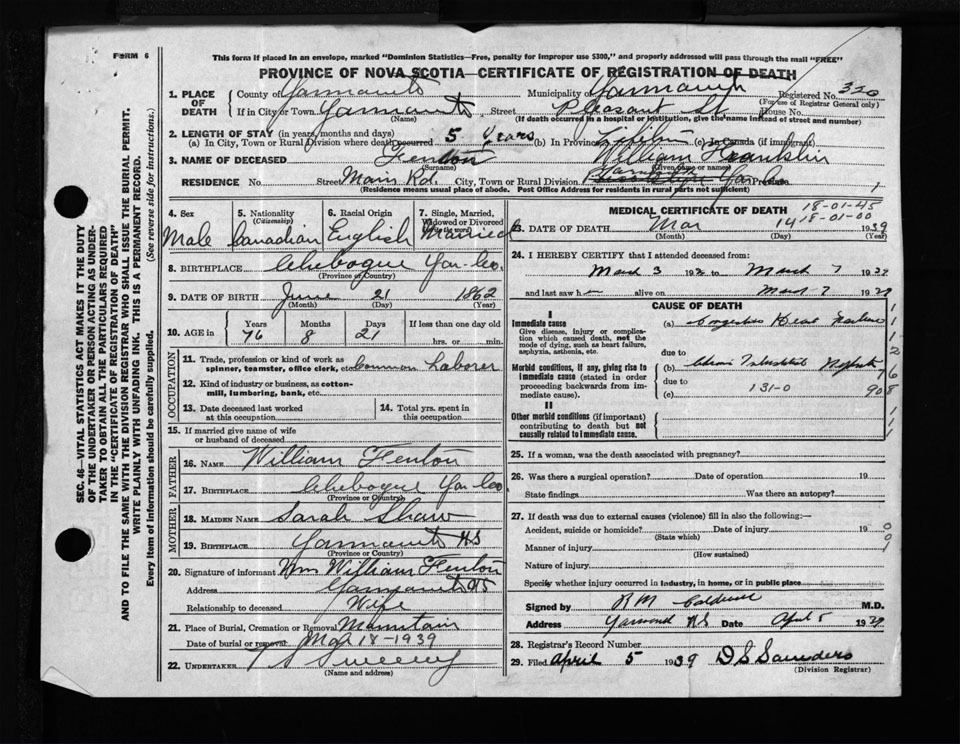 FORM 6
This form if placed in an envelope, marked "Dominion Statistics—Free, penalty for improper use $300," and properly addressed will pass through the mail "FREE"
PROVINCE OF NOVA SCOTIA—CERTIFICATE OF REGISTRATION OF DEATH
1. PLACE OF DEATH
County of Yarmouth Municipality of Yarmouth Registered No. 320
(For use of Registrar General only)
If in City or Town Yarmouth, Street Pleasant St. House No.
(Name) (If death occurred in a hospital or institution, give the name instead of street and number)
2. LENGTH OF STAY (in years, months and days)
(a) In City, Town or Rural Division where death occurred 5 Years (b) In Province (c) In Canada (if immigrant)
3. NAME OF DECEASED Fenton William Franklin
(Surname) (Given name or names)
RESIDENCE No. Street Main Rd. City, Town or Rural Division Yar Province
(Residence means usual place of abode. Post Office Address for residents in rural parts not sufficient)
SEC. 46—VITAL STATISTICS ACT MAKES IT THE DUTY
OF THE UNDERTAKER OR PERSON ACTING AS UNDER-
TAKER TO OBTAIN ALL THE PARTICULARS REQUIRED
IN THE "CERTIFICATE OF REGISTRATION OF DEATH"
AND TO FILE THE SAME WITH THE DIVISION REGISTRAR WHO SHALL ISSUE THE BURIAL PERMIT.
WRITE PLAINLY WITH UNFADING INK. THIS IS A PERMANENT RECORD.
Every item of information should be carefully supplied. (See reverse side for instructions.)
4. Sex
Male
5. Nationality
(Citizenship)
Canadian
6. Racial Origin
English
7. Single, Married,
Widowed or Divorced
(Write the word)
Married
8. BIRTHPLACE Chebogue Yar. Co.
(Province or Country)
9. DATE OF BIRTH June 21 1862
(Month) (Day) (Year)
10. AGE in
Years Months Days If less than one day old
76 8 21 hrs. or min.
OCCUPATION
11. Trade, profession or kind of work as
spinner, teamster, office clerk, etc. Common Laborer
12. Kind of industry or business, as cotton-
mill, lumbering, bank, etc.
13. Date deceased last worked
at this occupation
14. Total yrs. spent in
this occupation
15. If married give name of wife
or husband of deceased
FATHER
16. NAME William Fenton
17. BIRTHPLACE Chebogue Yar. Co.
(Province or Country)
MOTHER
18. MAIDEN NAME Sarah Shaw
19. BIRTHPLACE Yarmouth NS
(Province or Country)
20. Signature of informant Mrs William Fenton
Address Yarmouth NS
Relationship to deceased Wife
21. Place of Burial, Cremation or Removal Mountain
Date of burial or removal Mar 18-1939
22. UNDERTAKER Sweeny
(Name and address)
MEDICAL CERTIFICATE OF DEATH
18-01-45
18-01-00
23. DATE OF DEATH Mar 14 1939
(Month) (Day) (Year)
24. I HEREBY CERTIFY that I attended deceased from:
March 3 to March 7 1939
and last saw h alive on March 7 1939
CAUSE OF DEATH
I
Immediate cause
Give disease, injury or complica-
tion which caused death, not the
mode of dying, such as heart failure,
asphyxia, asthenia, etc.
(a) Congestive Heart Failure
due to
Morbid conditions, if any, giving rise to
immediate cause (stated in order
proceeding backwards from im-
mediate cause).
(b) Chronic Interstitial Nephritis
due to
131-0 90
(c)
II
Other morbid conditions (if important)
contributing to death but not
causally related to immediate cause.
25. If a woman, was the death associated with pregnancy?
26. Was there a surgical operation? Date of operation 19
State findings Was there an autopsy?
27. If death was due to external causes (violence) fill in also the following:—
Accident, suicide or homicide? Date of injury 19
(State which)
Manner of injury
(How sustained)
Nature of injury
Specify whether injury occurred in industry, in home, or in public place
Signed by R M Caldwell M.D.
Address Yarmouth NS Date April 5 1939
28. Registrar's Record Number
29. Filed April 5 1939 D S Saunders
(Division Registrar)